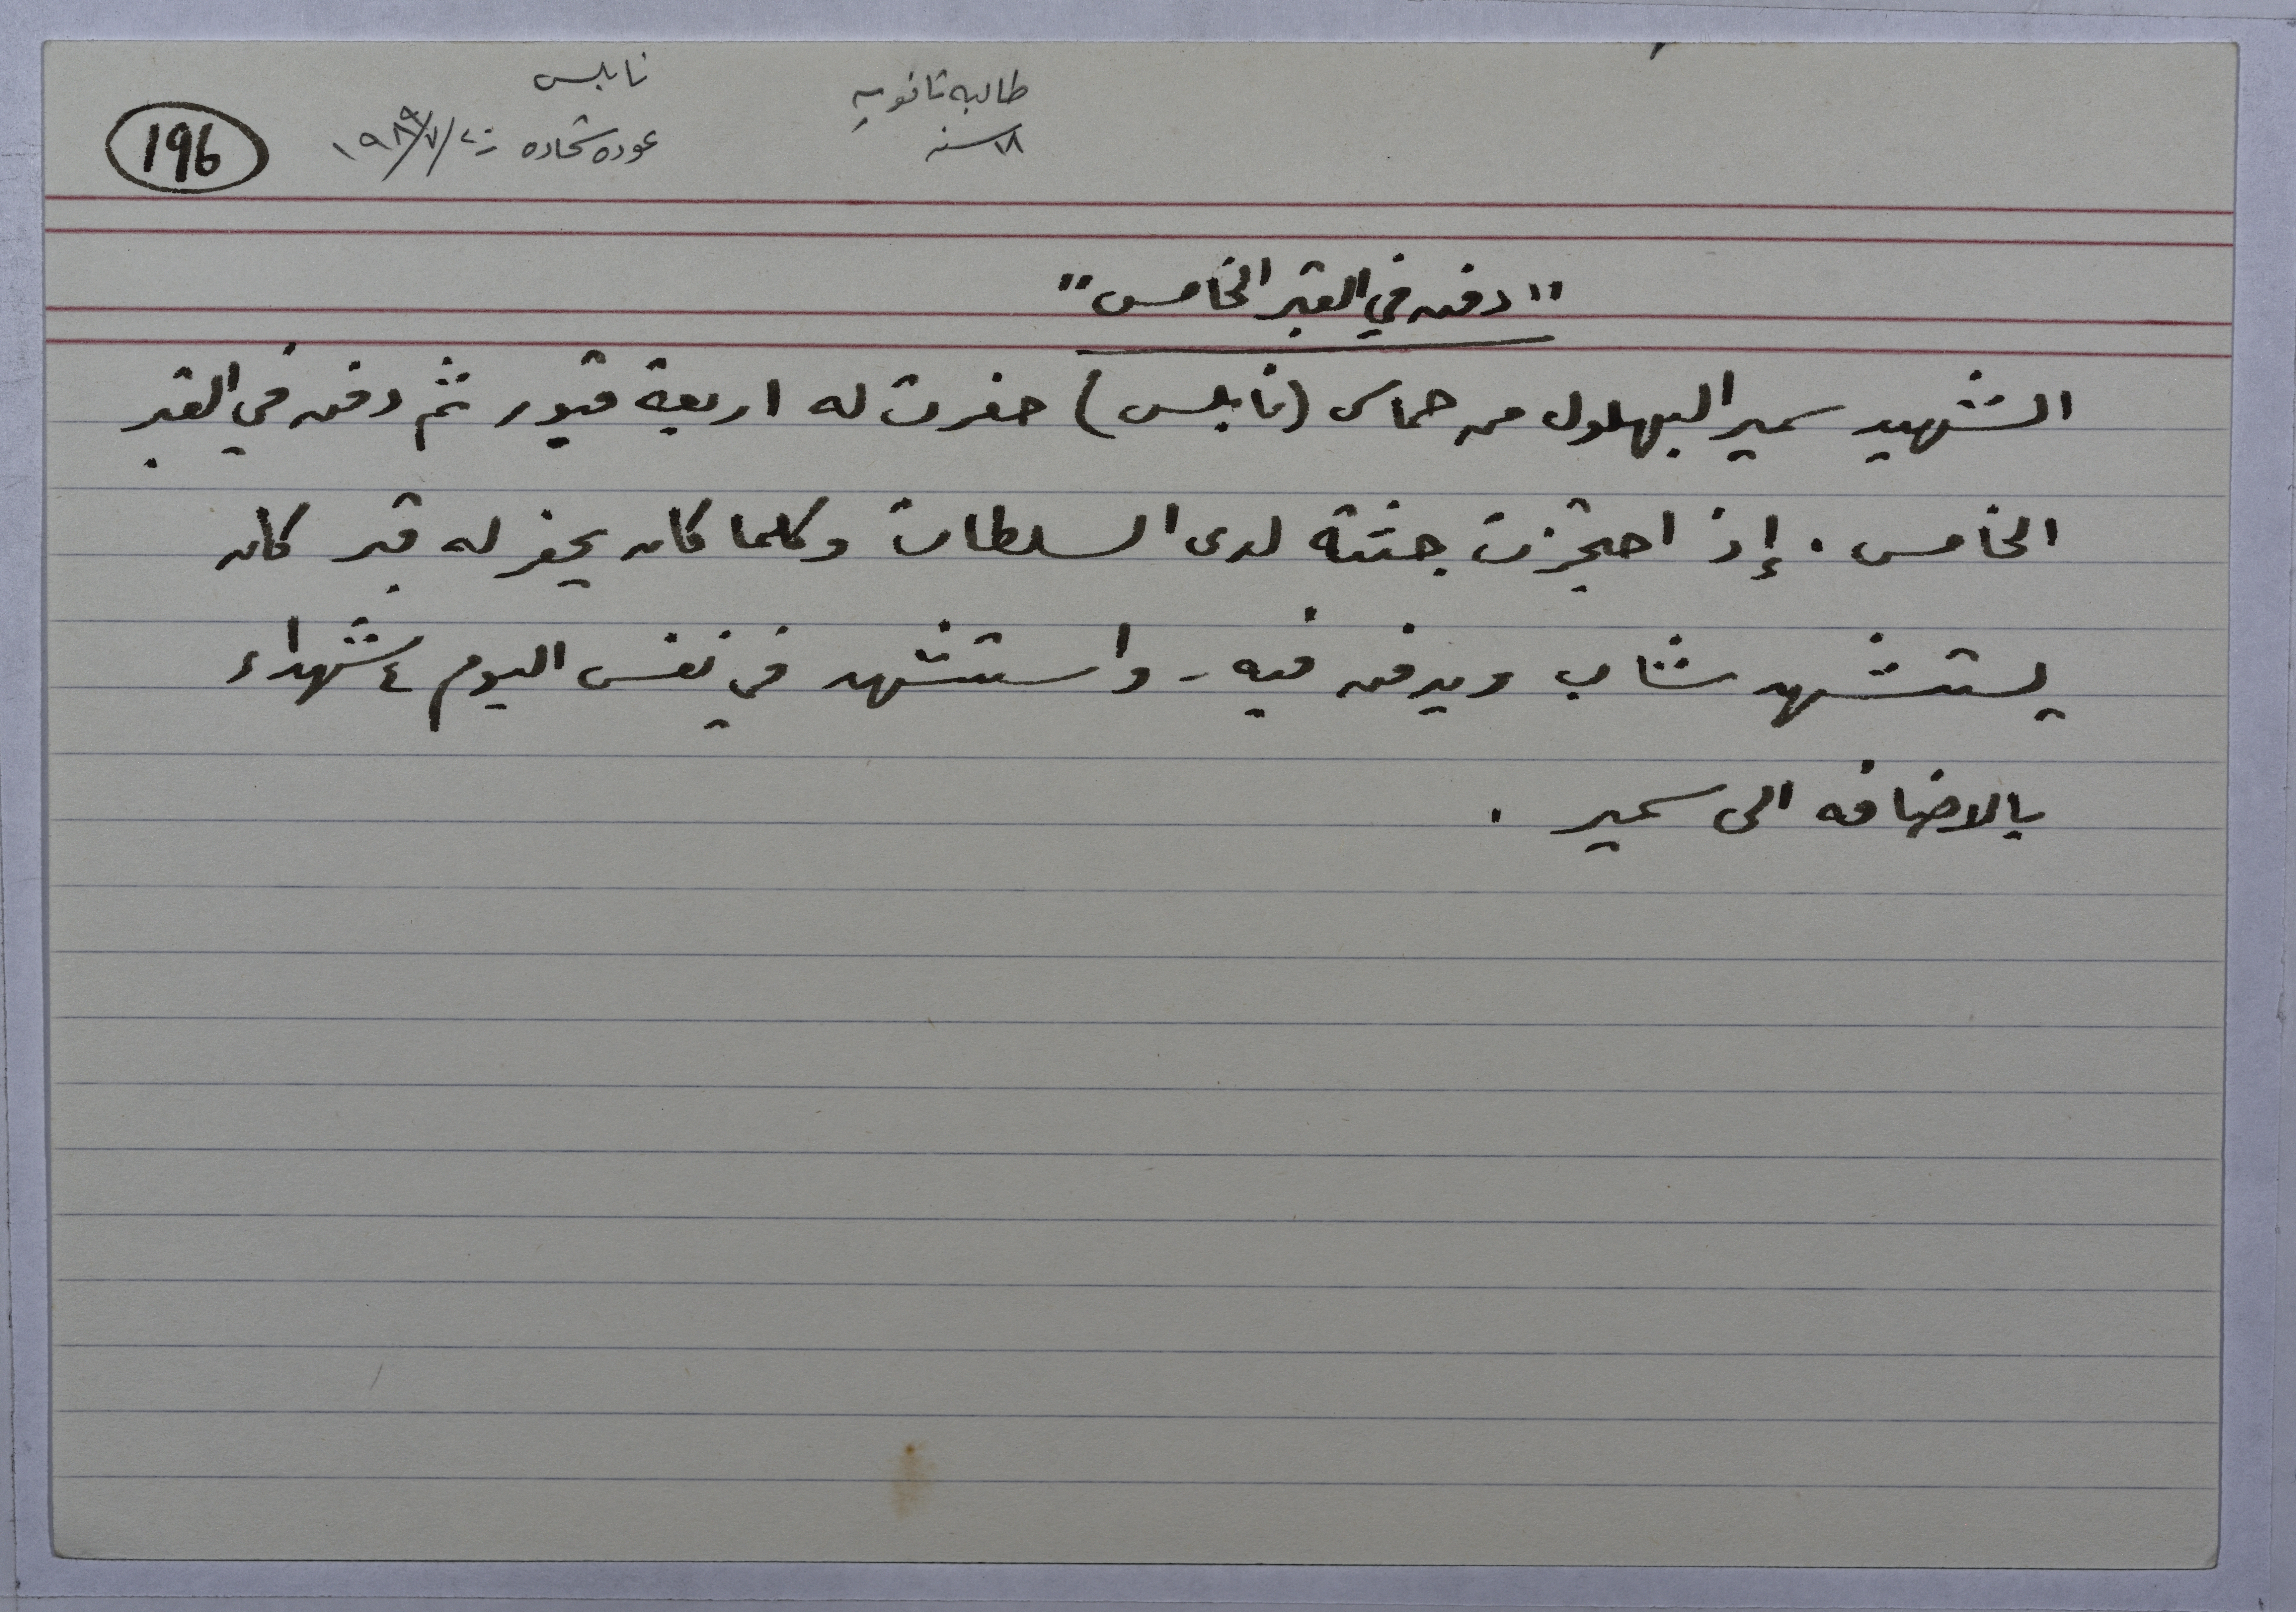 طالبه ثانويه
١٨ سنه
نابلس
عوده شحاده ز ١٩٨٩/٧/
196
"دفن في القبر الخامس"
الشهيد سمير البهلول من حماس (نابلس) حفرت له اربعة قبور ثم دفن في القبر
الخامس . إذ احتجزت جثته لدى السلطات وكلما كان يحفر له قبر كان
يستشهد شاب ويدفن فيه - واستشهد في نفس اليوم ٤ شهداء
بالاضافه الى سمير .